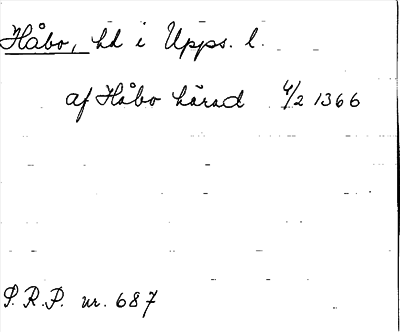 Håbo, hd i Upps. l.
af Håbo härad 4/2 1366
P.R.P. nr. 687